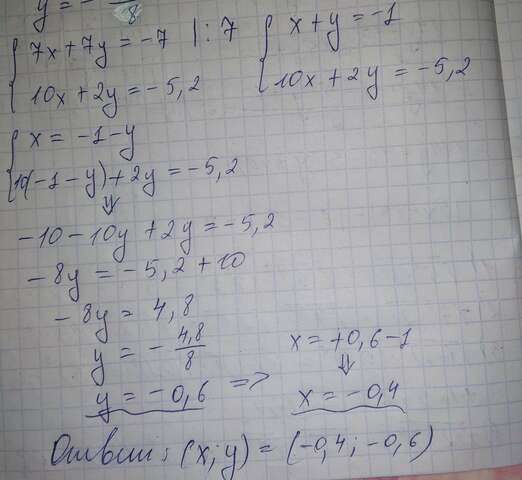 y = - 8
7x + 7y = -7 | : 7
10x + 2y = -5,2
x + y = -1
10x + 2y = -5,2
x = -1 - y
10(-1 - y) + 2y = -5,2
⇓
-10 - 10y + 2y = -5,2
-8y = -5,2 + 10
-8y = 4,8
y = - 4,8/8
y = -0,6 =>
x = +0,6 - 1
⇓
x = -0,4
Ответ: (x; y) = (-0,4; -0,6)